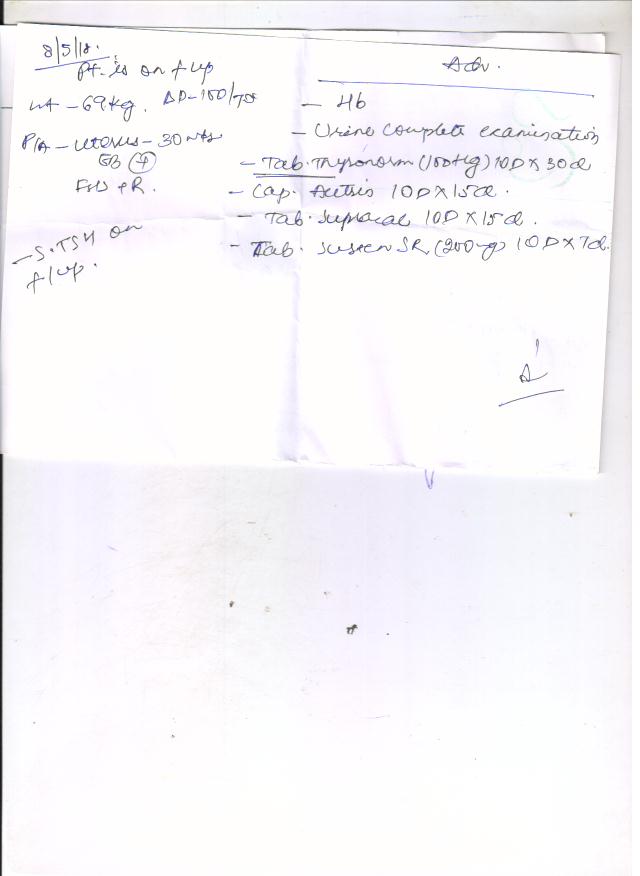 8/5/18.
Pt. is on f up
wt - 69kg. BP-100/70
P/A - uterus - 30 wks
FHS + R.
- S.TSH on
f/up.
Adv.
- Hb
- Urine complete examination
- Tab. Thyronorm (100 µg) 1OD X 30d
- Cap. 1OD X 15d.
- Tab. Supracal 1OD X 15d.
- Tab. Susten SR (200mg) 1OD X 7d.